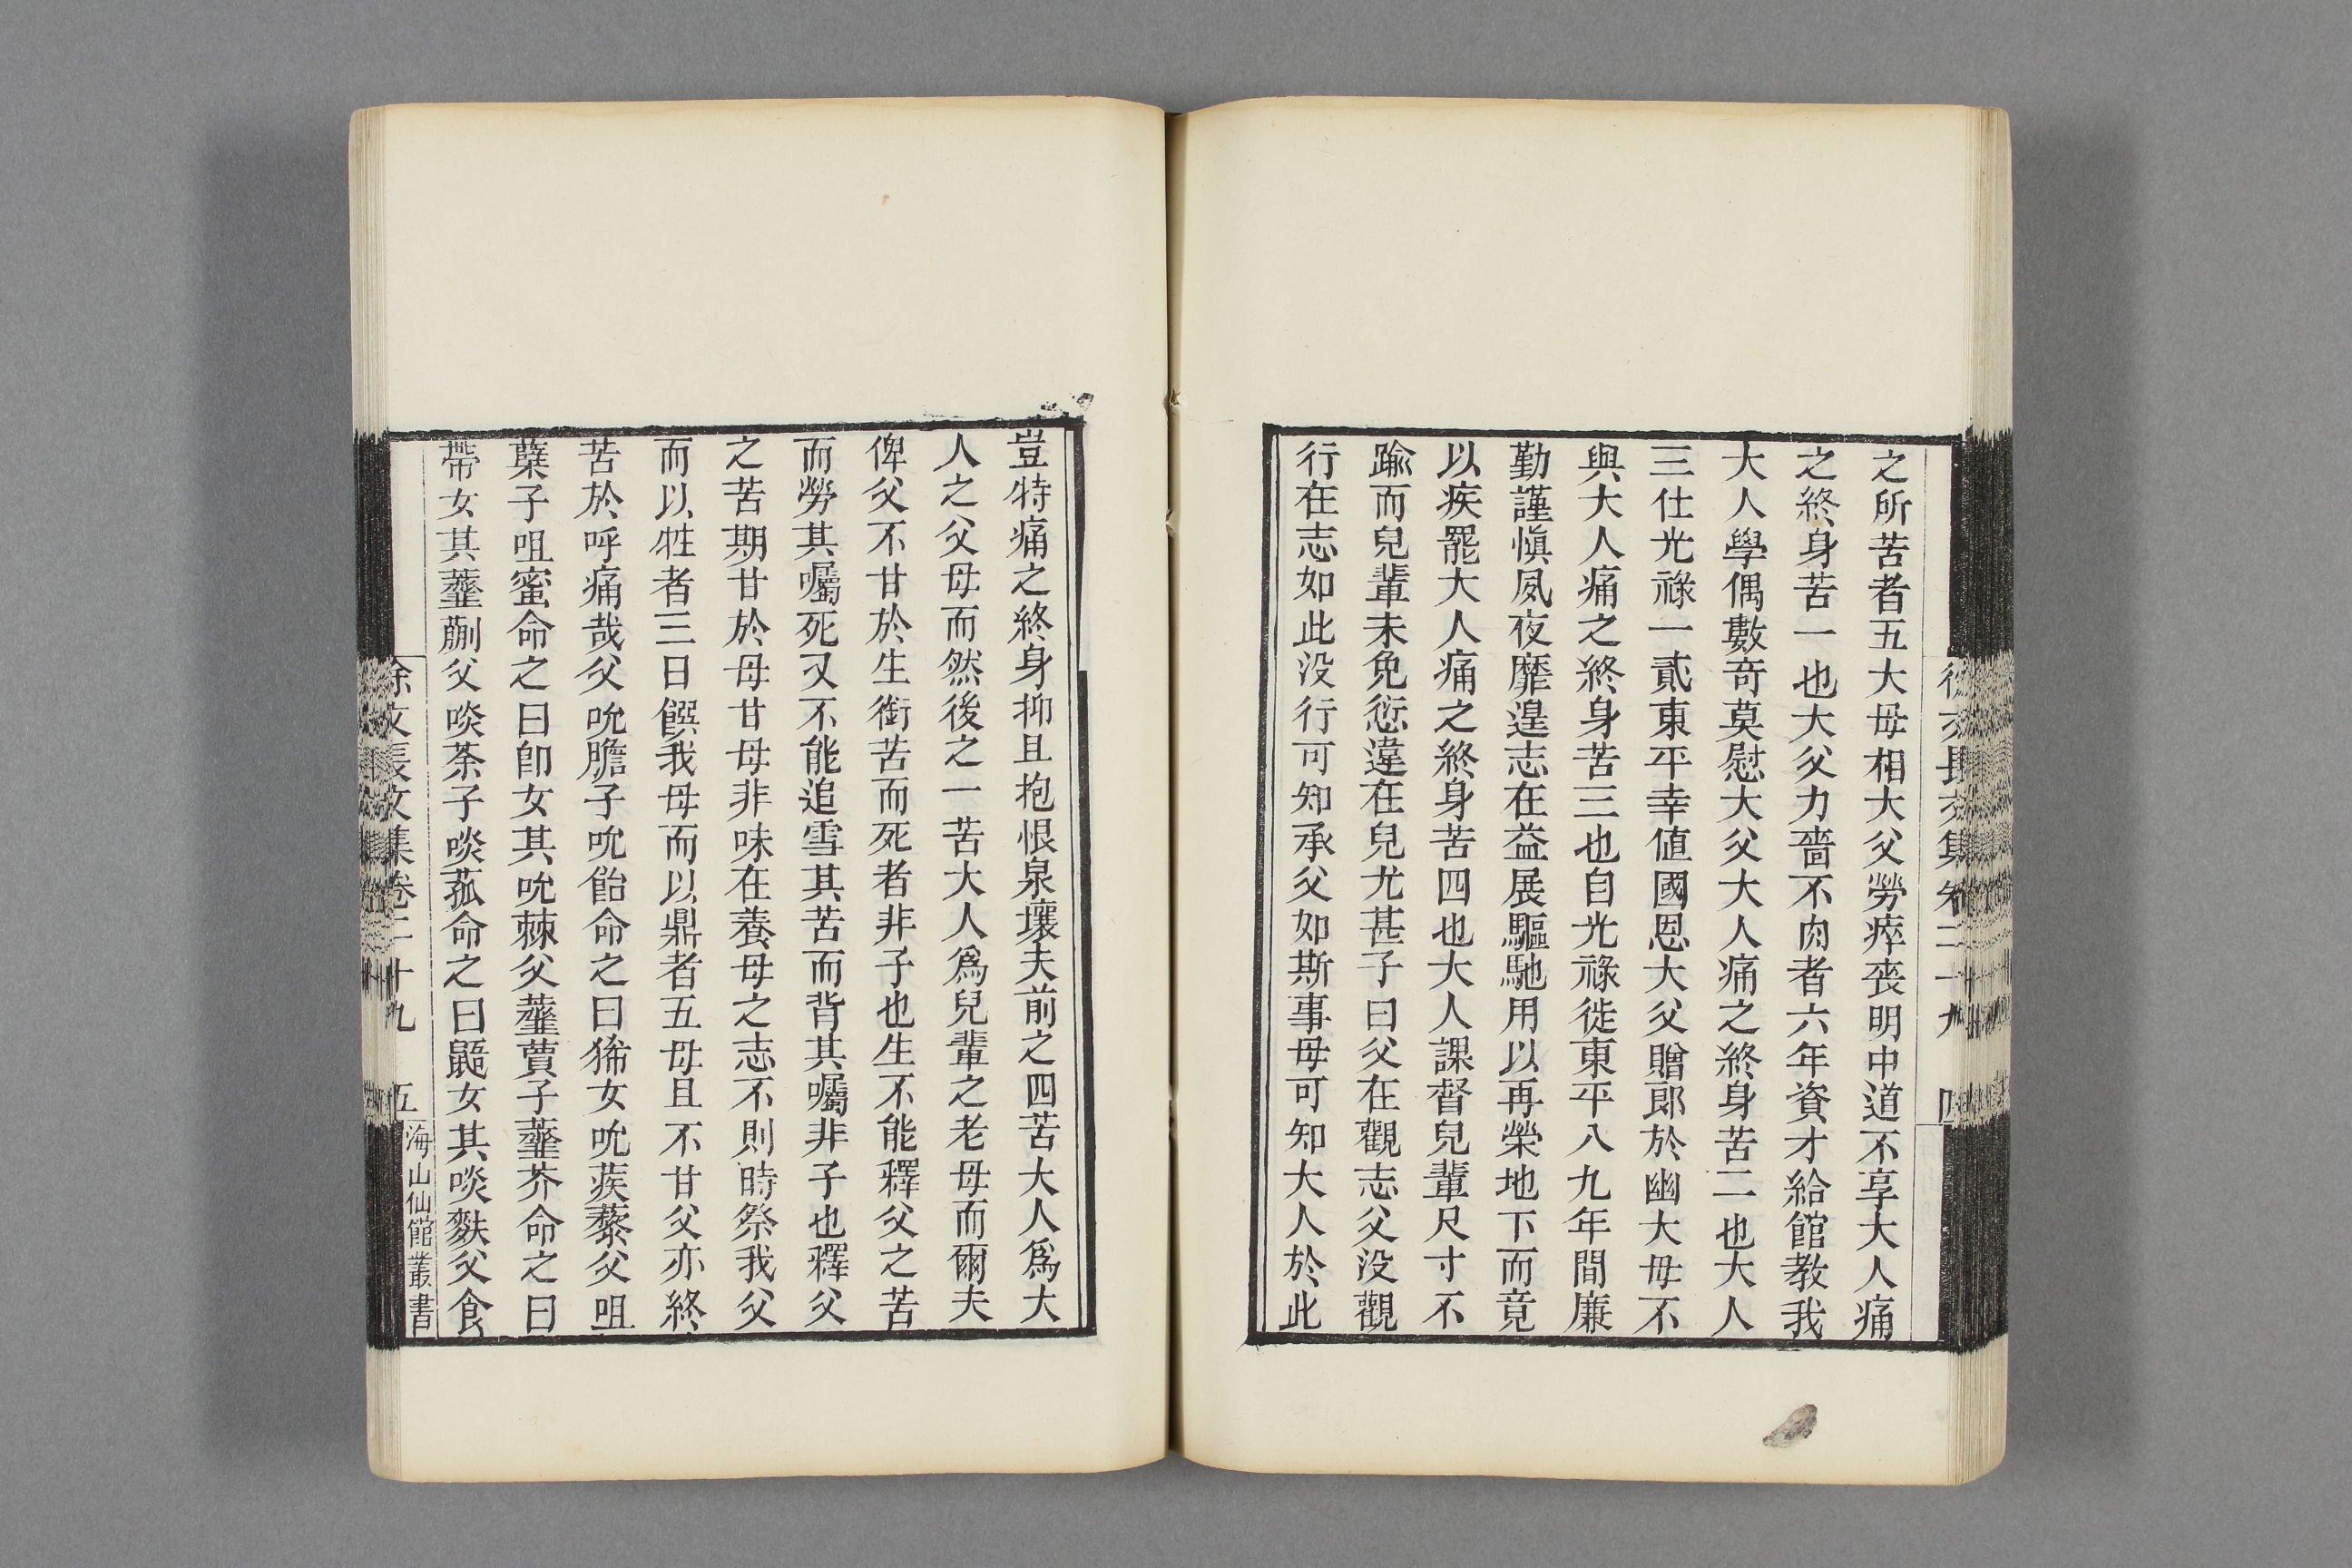 之所苦者五大母相大父勞瘁喪明中道不享大人痛
之終身苦一也大父力嗇不肉者六年資才給館教我
大人學偶數奇莫慰大父大人痛之終身苦二也大人
三仕光祿一貳東平幸値國恩大父贈郎於幽大母不
與大人痛之終身苦三也自光祿徙東平八九年間廉
勤謹愼夙夜靡遑志在益展驅馳用以再榮地下而竟
以疾罷大人痛之終身苦四也大人課督兒輩尺寸不
踰而兒輩未免愆違在兒尤甚子曰父在觀志父没觀
行在志如此没行可知承父如斯事母可知大人於此
豈特痛之終身抑且抱恨泉壤夫前之四苦大人爲大
人之父母而然後之一苦大人爲兒輩之老母而爾夫
俾父不甘於生銜苦而死者非子也生不能釋父之苦
而勞其囑死又不能追雪其苦而背其囑非子也釋父
之苦期甘於母甘母非味在養母之志不則時祭我父
而以牲者三日饌我母而以鼎者五母且不甘父亦終
苦於呼痛哉父吮膽子吮飴命之曰豨女吮蒺藜父咀
蘗子咀蜜命之曰卽女其吮棘父虀蕒子虀芥命之曰
帶女其虀蒯父啖荼子啖菰命之曰鼶女其啖麩父食
徐文長文集卷二十九 五
海山仙館叢書